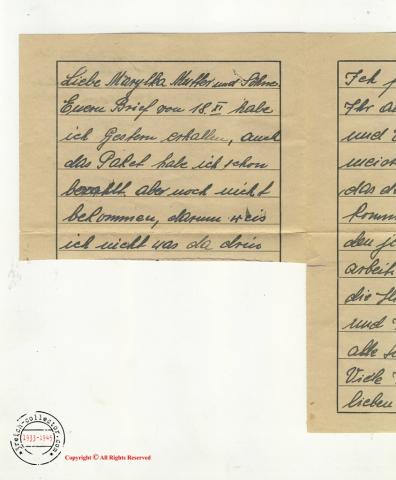 Liebe Marylka Mutter und Söhne
Euern Brief von 18.XI habe
ich Gestern erhalten, auch
das Paket habe ich schon
bezahlt aber noch nicht
bekommen, darum weis
ich nicht was da drin
Ich
Ihr
und
das
den
arbeit
und
alle
Viele
lieben
3reich-collector.com
1933-1945
Copyright © All Rights Reserved